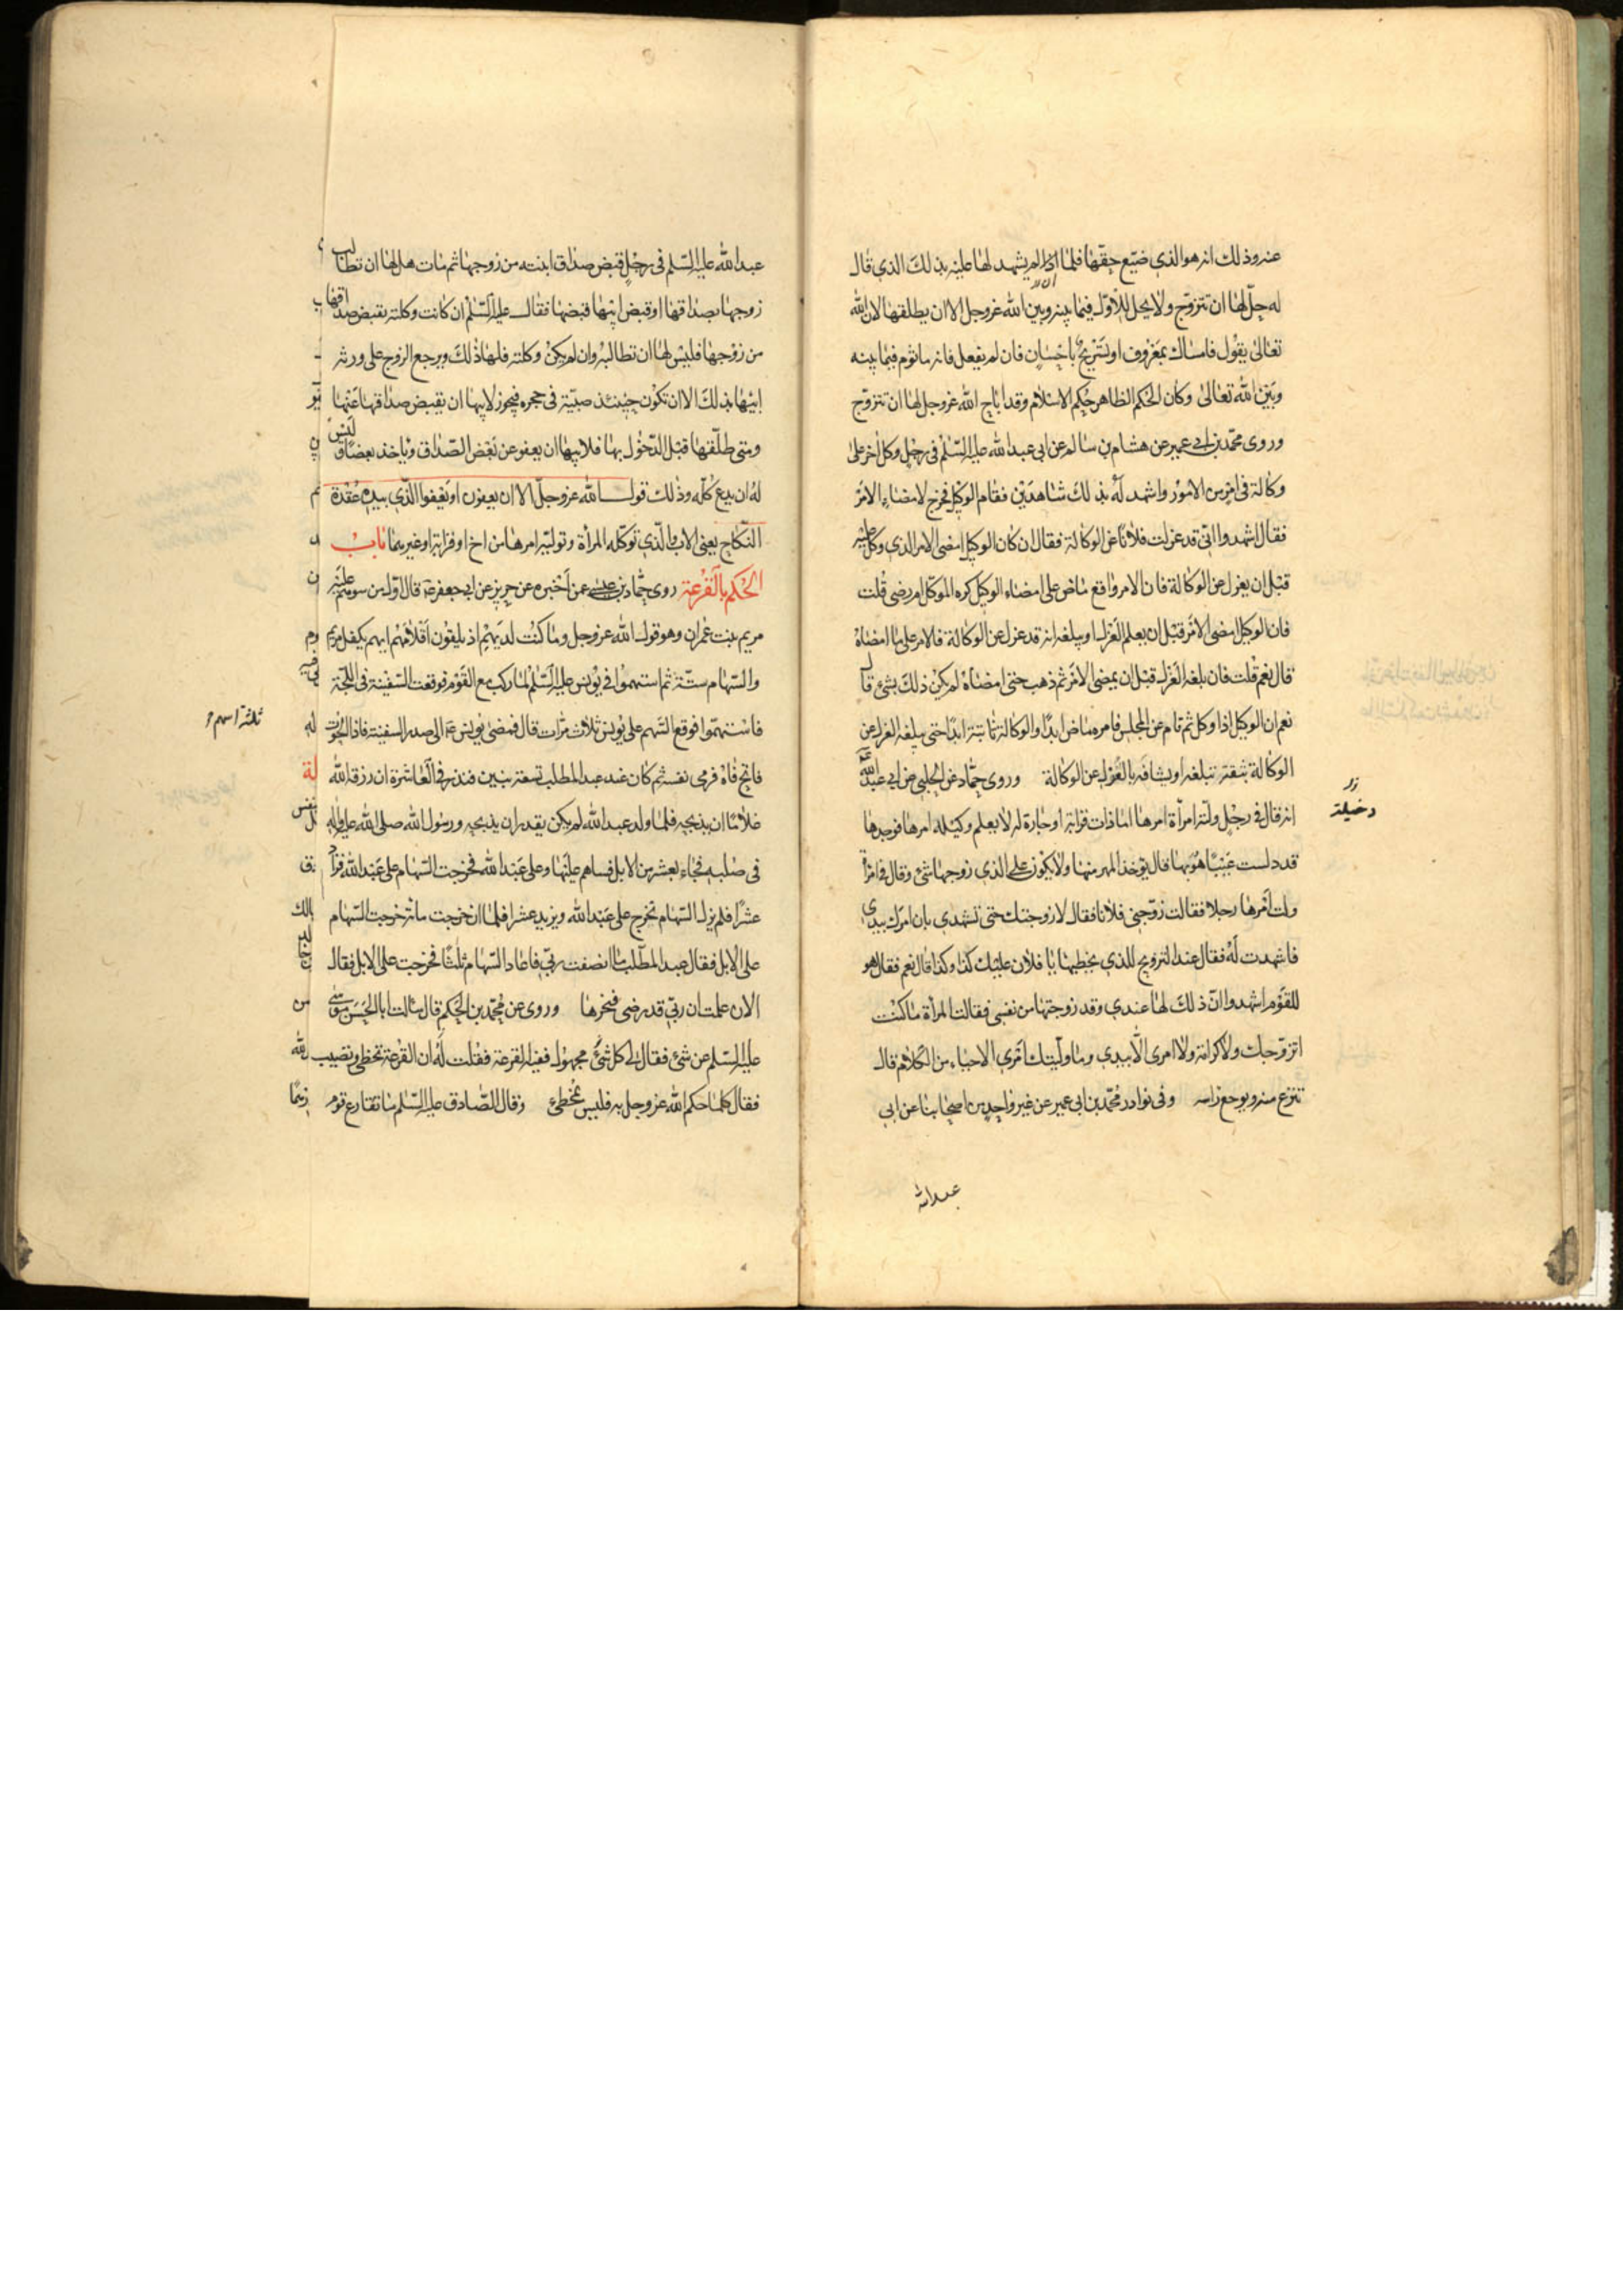 عنه وذلك انه هو الذي ضيّع حقّها فلما ان لم يشهد لها عليه بذلك الذي قال
له حلّ لها ان تتزوّج ولا يحل للاوّل فيما بينه وبين الله عزوجل الا ان يطلقها لان الله
تعالى يقول فامساك بمعروف او تسريح باحسان فان لم يفعل فانه ماثوم فيما بينه
وبين الله تعالى وكان الحكم الظاهر حكم الاسلام وقد اباح الله عزوجل لها ان تتزوّج
وروى محمّد بن ابي عمير عن هشام بن سالم عن ابي عبدالله عليه السّلم في رجل وكل اخر على
وكالة في امر من الامور واشهد له بذلك شاهدين فقام الوكيل فخرج لامضاء الامر
فقال اشهدوا انّي قد عزلت فلانا عن الوكالة فقال ان كان الوكيل امضى الامر الذي وكل عليه
قبل ان يعزل عن الوكالة فان الامر واقع ماض على امضاء الوكيل كره الموكّل ام رضى قلت
فان الوكيل امضى الامر قبل ان يعلم العزل او يبلغه انه قد عزل عن الوكالة فالامر على ما امضاه
قال نعم قلت فان بلغه العزل قبل ان يمضى الامر ثم ذهب حتى امضاه لم يكن ذلك بشئ قال
نعم ان الوكيل اذا وكل ثم قام عن المجلس فامره ماض ابدا والوكالة ثابتة ابدا حتى يبلغه العزل عن
الوكالة بثقة تبلغه او يشافه بالعزل عن الوكالة وروى حمّاد عن الحلبي عن ابي عبدالله
انه قال في رجل ولّته امرأة امرها اما ذات قرابة او جارة له لا يعلم دخيلة امرها فوجدها
قد دلست عيبا هو بها قال يؤخذ المهر منها ولا يكون على الذي زوجها شئ وقال في امرأة
ولت امرها رجلا فقالت زوّجني فلانا فقال لا زوجتك حتى تشهدي بان امرك بيدي
فاشهدت له فقال عند التزويج للذي يخطبها يا فلان عليك كذا وكذا قال نعم فقال هو
للقوم اشهدوا انّ ذلك لها عندي وقد زوجتها من نفسي فقالت المرأة ما كنت
اتزوّجك ولا كرامة ولا امرى الّا بيدي وما ولّيتك امري الا حياء من الكلام قال
تنزع منه ويوجع راسه وفي نوادر محمّد بن ابي عمير عن غير واحد من اصحابنا عن ابي
عبدالله
دخيلة
عبدالله عليه السّلم في رجل قبض صداق ابنته من زوجها ثم مات هل لها ان تطالب
زوجها بصداقها او قبض ابيها قبضها فقال عليه السّلم ان كانت وكلته بقبض صداقها
من زوجها فليس لها ان تطالبه وان لم يكن وكلته فلها ذلك ويرجع الزوج على ورثه
ابيها بذلك الا ان تكون حينئذ صبيّة في حجره فيجوز لابيها ان يقبض صداقها عنها
ومتى طلّقها قبل الدّخول بها فلابيها ان يعفو عن بعض الصّداق وياخذ بعضا وليس
له ان يدع كلّه وذلك قول الله عزوجلّ الا ان يعفون او يعفوا الّذي بيده عقدة
النّكاح يعني الاب والّذي توكّله المرأة وتولّيه امرها من اخ او قرابة او غيرهما باب
الحكم بالقرعة روى حمّاد بن عيسى عمن اخبره عن حريز عن ابي جعفر ع قال اوّل من سوهم عليه
مريم بنت عمران وهو قول الله عزوجل وما كنت لديهم اذ يلقون اقلامهم ايهم يكفل مريم
والسّهام ستّة ثم استهموا في يونس عليه السّلم لما ركب مع القوم فوقعت السّفينة في اللّجّة
فاستهمّوا فوقع السّهم على يونس ثلاث مرّات قال فمضى يونس ع الى صدر السفينة فاذا الحوت
فاتح فاه فرمى نفسه ثم كان عند عبد المطلب تسعة بنين فنذر في العاشرة ان رزقه الله
غلاما ان يذبحه فلما ولد عبدالله لم يكن يقدر ان يذبحه ورسول الله صلى الله عليه واله
في صلبه فجاء بعشر من الابل فساهم عليها وعلى عبدالله فخرجت السّهام على عبدالله فزاد
عشرا فلم يزل السّهام تخرج على عبدالله ويزيد عشرا فلما ان خرجت مائة خرجت السّهام
على الابل فقال عبد المطّلب ما انصفت ربّي فاعاد السّهام ثلثا فخرجت على الابل فقال
الان علمت ان ربّي قد رضى فنحرها وروى عن محمّد بن الحكم قال سألت ابا الحسن موسى
عليه السّلم عن شئ فقال لي كل شئ مجهول ففيه القرعة فقلت له ان القرعة تخطى وتصيب
فقال كلما حكم الله عزوجل به فليس بمخطئ وقال الصّادق عليه السّلم ما تقارع قوم
ثلثة اسهم